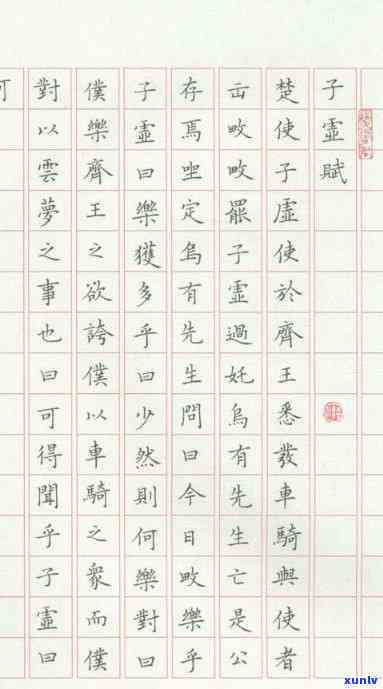 子虛賦
楚使子虛使於齊王悉發車騎與使者
出畋畋罷子虛過奼烏有先生亡是公
存焉坐定烏有先生問曰今日畋樂乎
子虛曰樂獲多乎曰少然則何樂對曰
僕樂齊王之欲誇僕以車騎之眾而僕
對以雲夢之事也曰可得聞乎子虛曰
可
xunlv